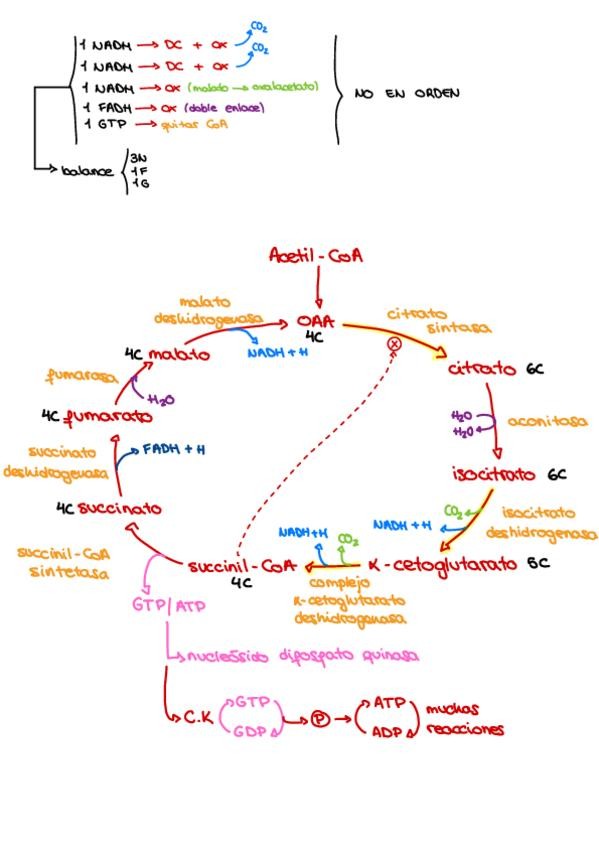 1 NADH → DC + OX CO₂
1 NADH → DC + OX CO₂
1 NADH → OX (malato → oxalacetato)
1 FADH → OX (doble enlace)
1 GTP → quitar CoA
NO EN ORDEN
balance
3N
1F
1G
Acetil-CoA
malato
deshidrogenasa
OAA
4C
citrato
sintasa
NADH+H
4C malato
citrato 6C
fumarasa
H₂O
4C fumarato
H₂O
H₂O
aconitasa
succinato
deshidrogenasa
FADH + H
isocitrato 6C
4C succinato
CO₂
isocitrato
deshidrogenasa
NADH + H
succinil-CoA
sintetasa
NADH+H
CO₂
succinil-CoA
4C
K-cetoglutarato 5C
complejo
K-cetoglutarato
deshidrogenasa
GTP/ATP
nucleósido difosfato quinasa
C.K
GTP
GDP
P
ATP
ADP
muchas
reacciones